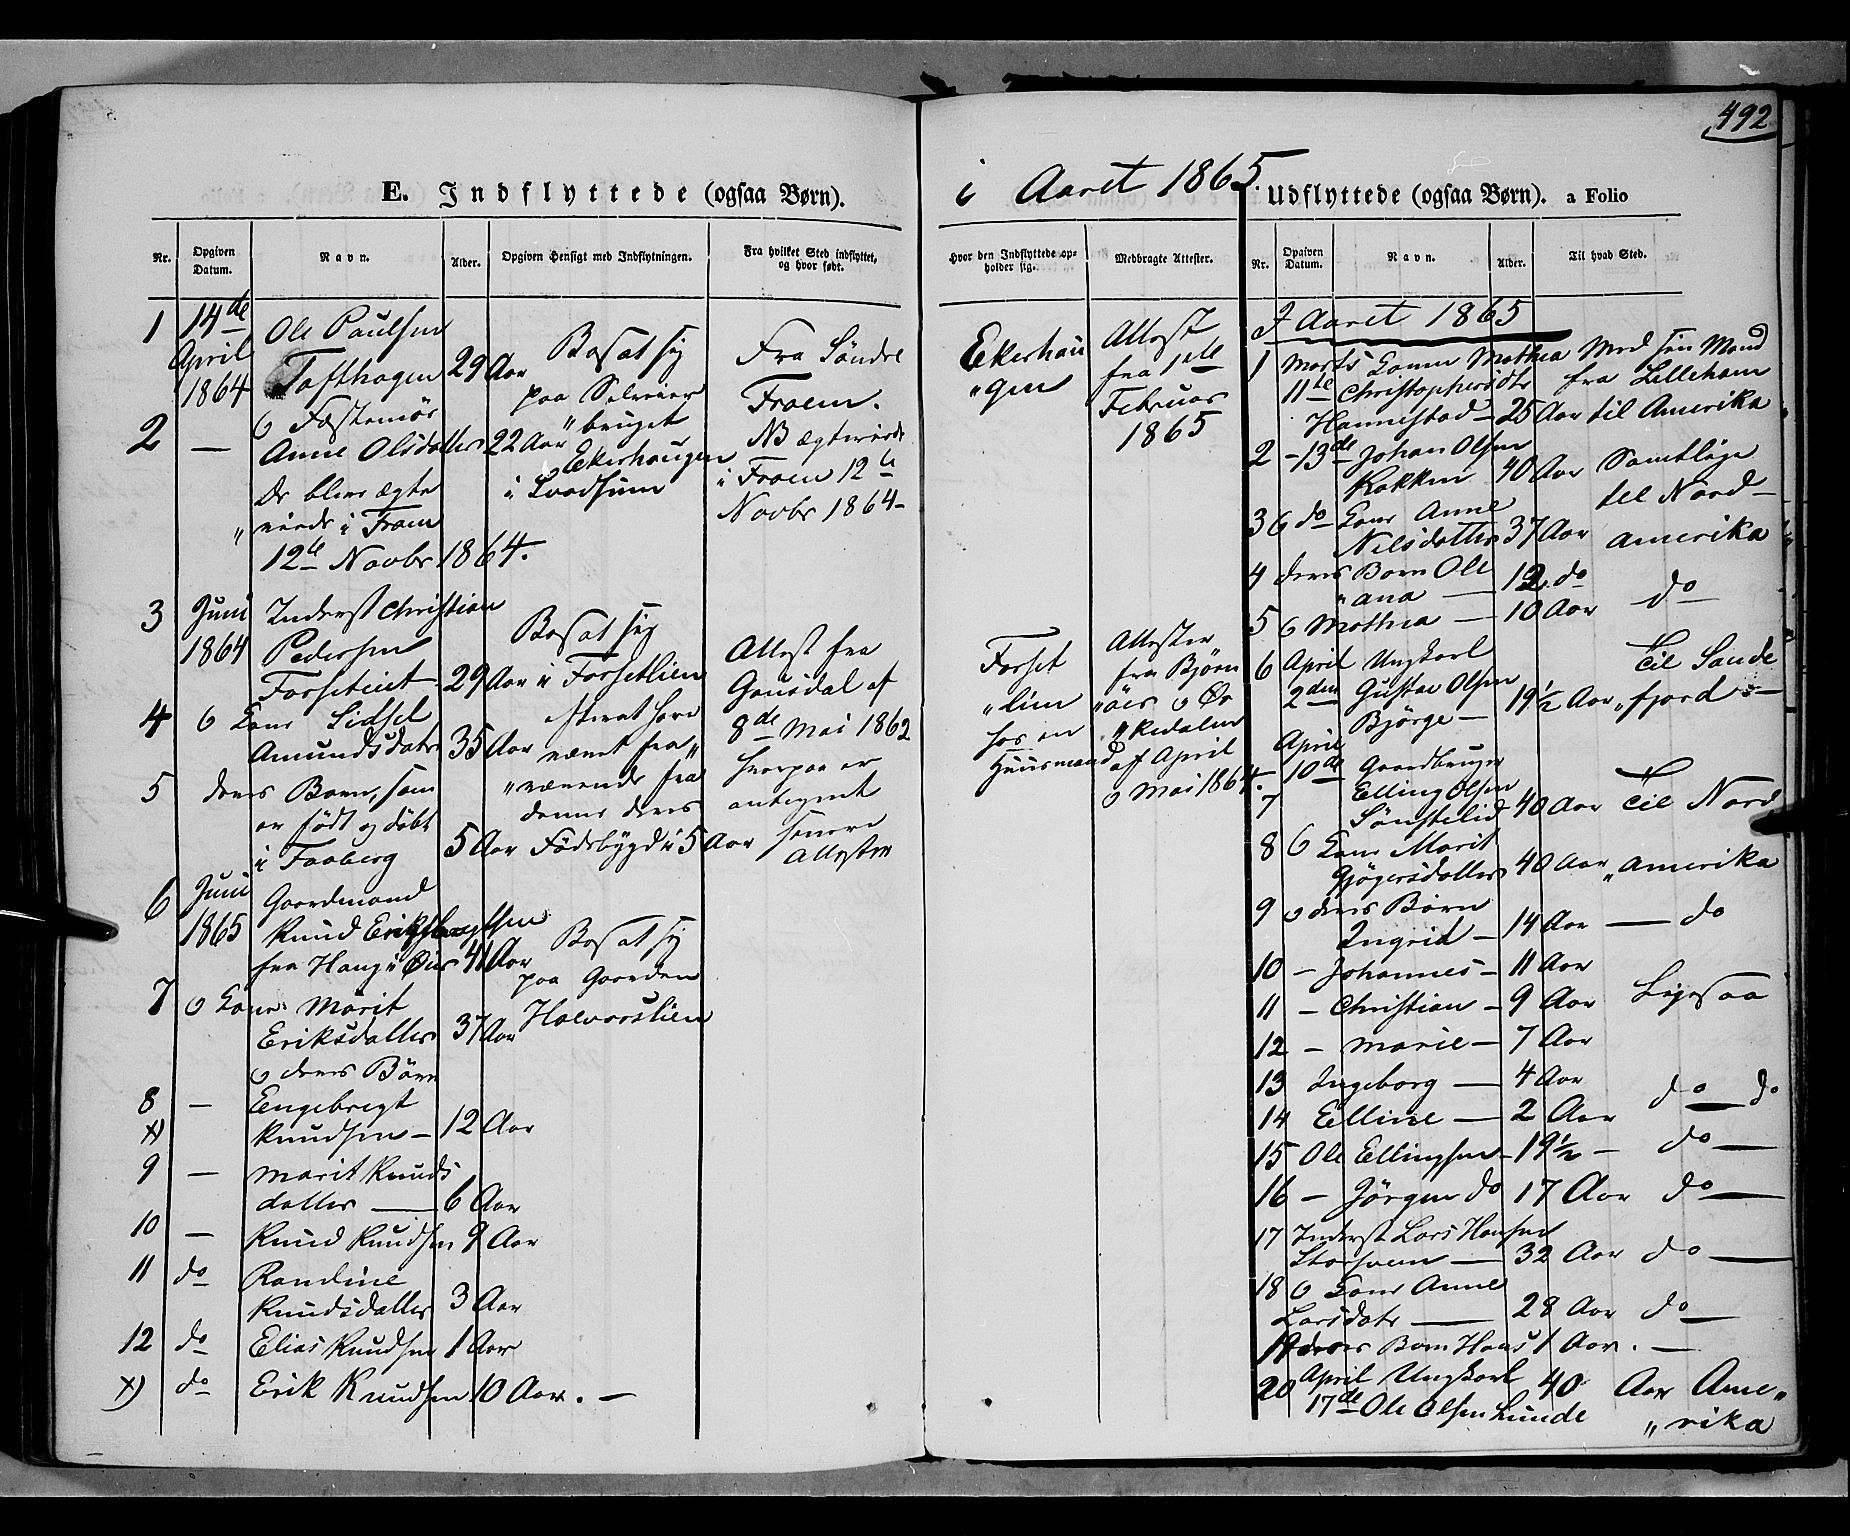 492
E. Indflyttede (ogsaa Børn).
i Aaret 1865.
Udflyttede (ogsaa Børn). a Folio
Nr.
Opgiven Datum.
Navn.
Alder.
Opgiven Hensigt med Indflytningen.
Fra hvilket Sted indflyttet, og hvor født.
Hvor den Indflyttede opholder sig.
Medbragte Attester.
Nr.
Opgiven Datum.
Navn.
Alder.
Til hvad Sted.
1 14de April 1864
Ole Paulsen
Tofthagen 29 Aar
Bosat sig
paa
"bruget
Ekerhaugen
i
Fra Söndre
Froen.
NB Ægteviede
i Froen 12te
Novbr 1864-
Ekerhau
"gen
Attest
fra 1ste
Februar
1865
2 — o Fæstemø
Anne Olsdatter 22 Aar
De blev ægte
"viede i Froen
12te Novbr 1864.
3 Juni 1864
Inderst Christian
Pedersen
29 Aar
Bosat sig
i Forsetlien
Attest fra
Gausdal af
8de Mai 1862
hvorpaa er
antegnet
senere
Attester
Forset
"lien
hos en
Huusmand
Attester
fra Bjørn
af April
o Mai 1864.
4 o Kone Sidsel
Amundsdatr 35 Aar
5 deres Barn, som
er født og døbt
i Faaberg 5 Aar
denne deres
Fødebygd i 5 Aar
6 Juni 1865
Gaardmand
Knud
fra Haug i 41 Aar
Bosat sig
paa Gaarden
Halvorslien
7 o Kone Marit
Eriksdatter 37 Aar
o deres Børn
8 — Engebregt
x) Knudsen — 12 Aar
9 — Marit Knuds
datter — 6 Aar
10 — Knud Knudsen 9 Aar
11 do Randine
Knudsdatter 3 Aar
12 do Elias Knudsen 1 Aar
x) do Erik Knudsen 10 Aar. —
I Aaret 1865
1 Marts 11te Kone Mathea
Christophersdtr
Hammestad — 25 Aar
Med sin Mand
fra Lilleham
til Amerika
2 — 13de Johan Olsen
Kokken 40 Aar
Samtlige
til Nord—
Amerika
3 o do Kone Anne
Nilsdatter 37 Aar
4 deres Barn Ole
"ana — 12 do
do
5 o Mathea — 10 Aar
6 April 2den Ungkarl
Gustav Olsen
Bjørge — 19½ Aar
Til Sande
"fjord —
April 10de
7 Gaardbruger
Elling Olsen
Sønstelid 40 Aar
Til Nord
8 o Kone Marit
40 Aar
"Amerika
9 o deres Børn
Ingrid — 14 Aar — do
10 — Johannes — 11 Aar
11 — Christian — 9 Aar
Ligesaa
12 — Marie — 7 Aar
13 Ingeborg — 4 Aar
14 Elline — 2 Aar
do — do
15 Ole Ellingsen — 19½ — do —
16 — Jörgen do 17 Aar do —
17 Inderst Lars Hansen
Storsveen — 32 Aar do —
18 o Kone Anne
Larsdatr — 28 Aar do —
19 deres Barn Hans 1 Aar. —
20 April 17de Ungkarl
Ole Olsen Lunde 40 Aar
Ame"
"rika